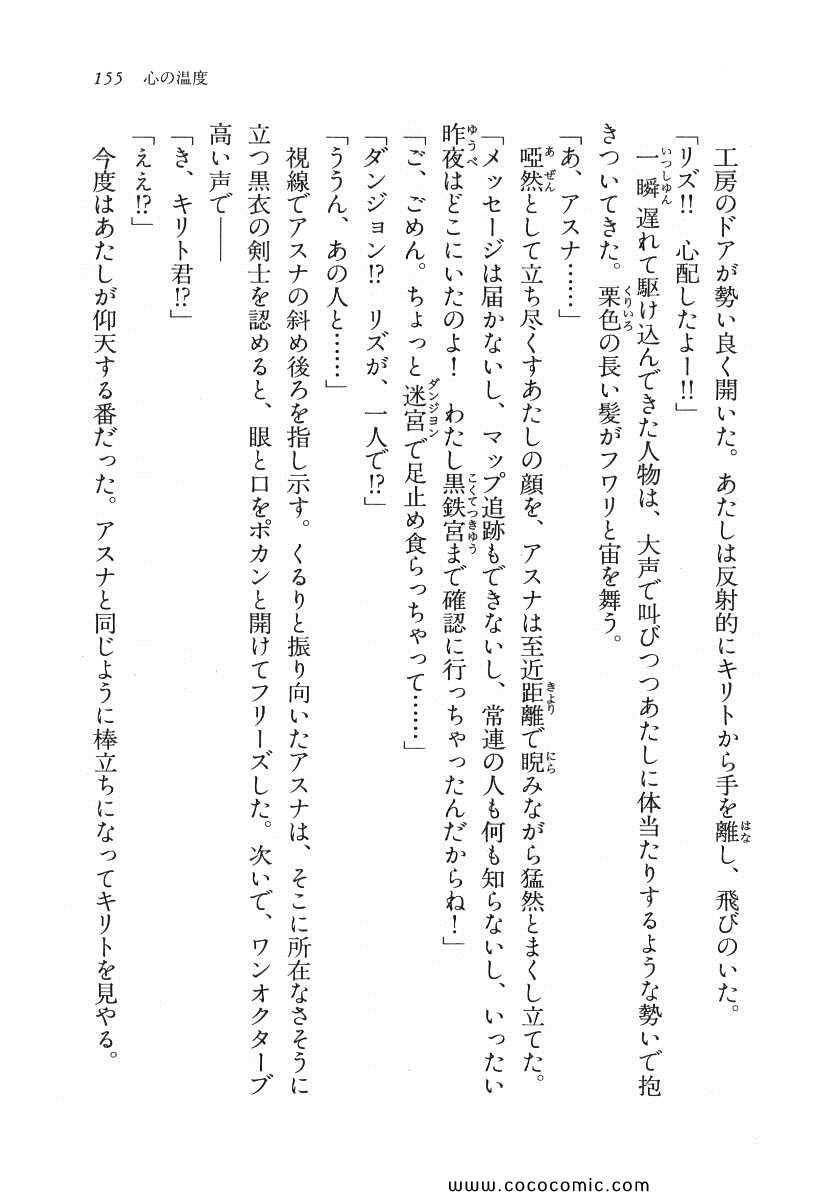 155 心の温度
工房のドアが勢い良く開いた。あたしは反射的にキリトから手を離し、飛びのいた。
「リズ!! 心配したよー!!」
一瞬遅れて駆け込んできた人物は、大声で叫びつつあたしに体当たりするような勢いで抱
きついてきた。栗色の長い髪がフワリと宙を舞う。
「あ、アスナ……」
啞然として立ち尽くすあたしの顔を、アスナは至近距離で睨みながら猛然とまくし立てた。
「メッセージは届かないし、マップ追跡もできないし、常連の人も何も知らないし、いったい
昨夜はどこにいたのよ！ わたし黒鉄宮まで確認に行っちゃったんだからね！」
「ご、ごめん。ちょっと迷宮で足止め食らっちゃって……」
「ダンジョン!? リズが、一人で!?」
「ううん、あの人と……」
視線でアスナの斜め後ろを指し示す。くるりと振り向いたアスナは、そこに所在なさそうに
立つ黒衣の剣士を認めると、眼と口をポカンと開けてフリーズした。次いで、ワンオクターブ
高い声で――
「き、キリト君!?」
「ええ!?」
今度はあたしが仰天する番だった。アスナと同じように棒立ちになってキリトを見やる。
http://www.cococomic.com/